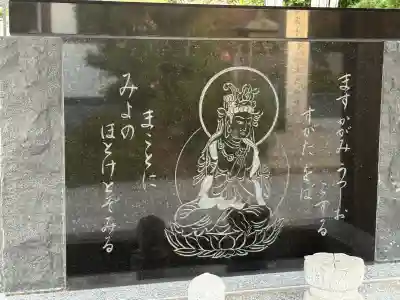 ますかがみうつしお
こする
すがたをば
まことに
みよの
ほとけとぞみる